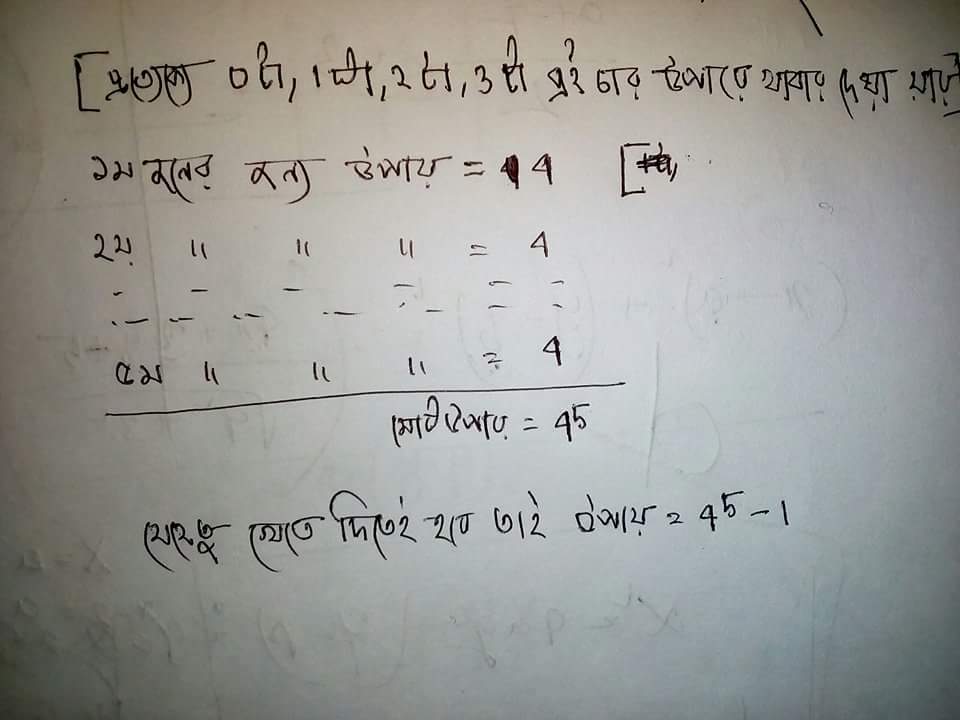 [প্রত্যেককে 0টা, 1টা, 2টা, 3টা এই চার উপায়ে খাবার দেয়া যায়]
১ম জনের জন্য উপায় = 4 [
২য় " " " = 4
৫ম " " " = 4
মোট উপায় = 4⁵
যেহেতু খেতে দিতেই হবে তাই উপায় = 4⁵ - 1